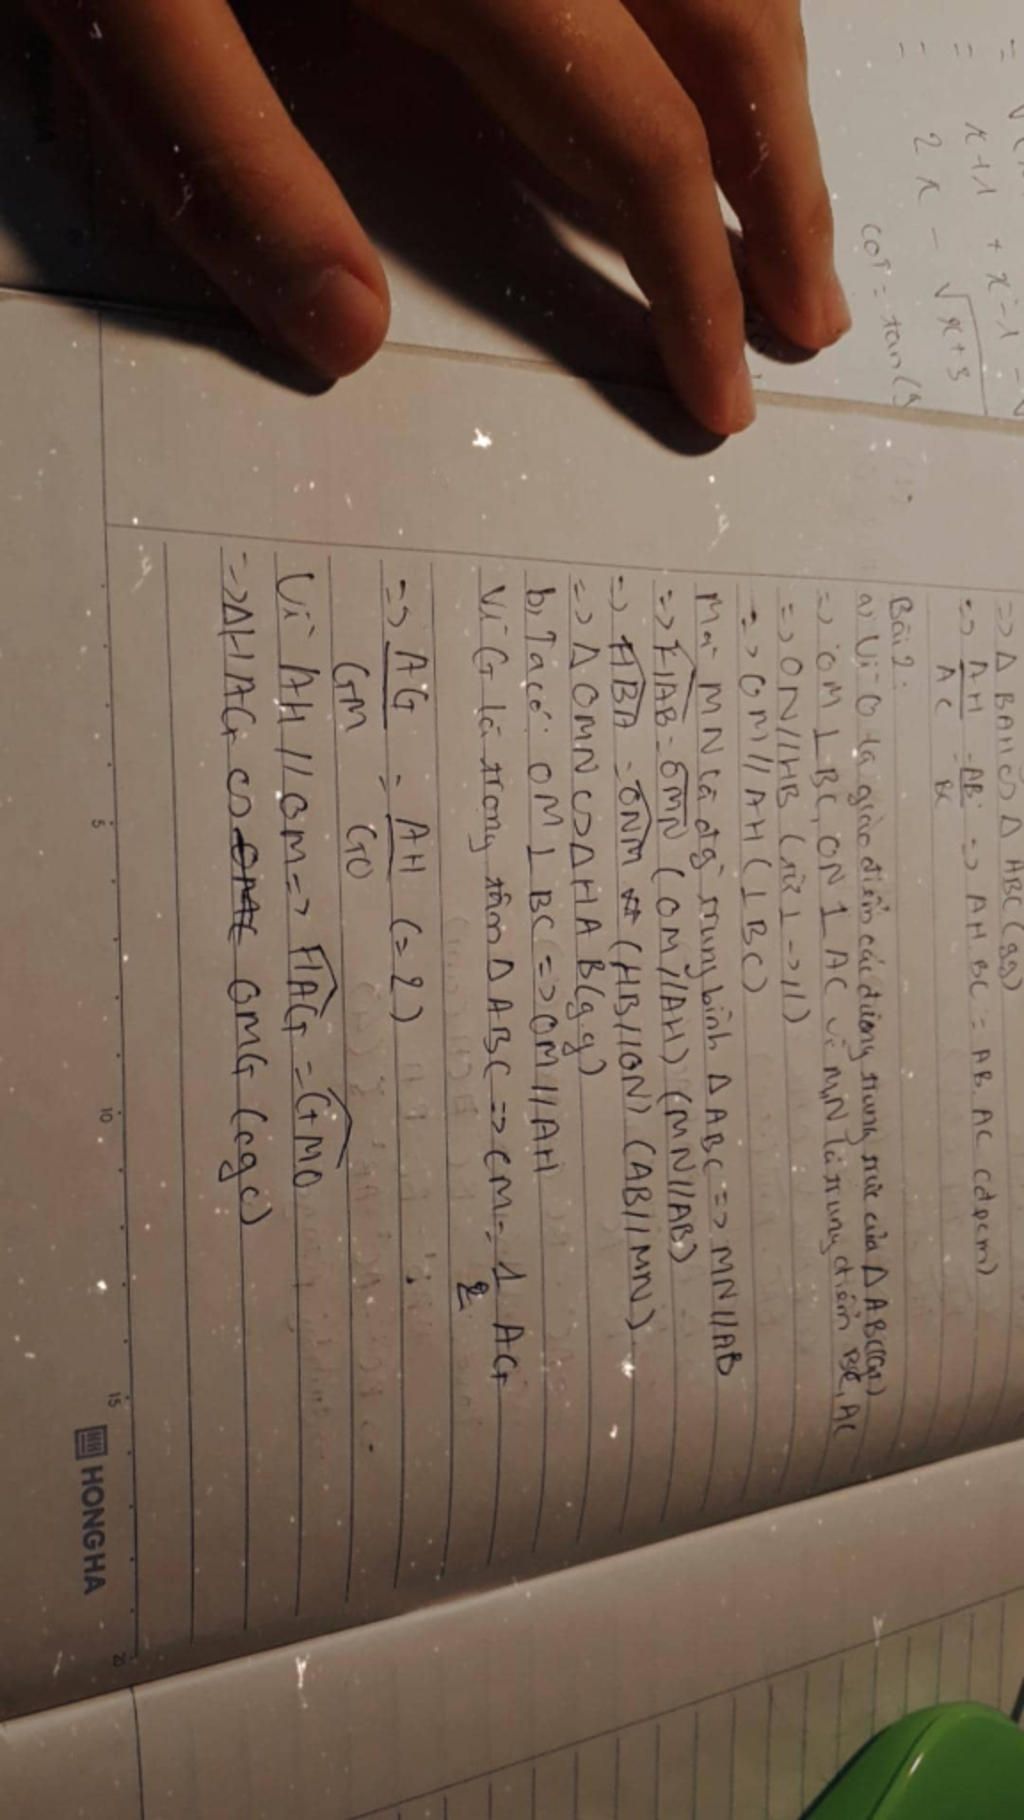 => Δ BAH ∽ Δ ABC (gg)
=> AH/AC = AB/BC => AH.BC = AB.AC (đpcm)
Bài 2:
a, Vì O là giao điểm các đường trung trực của Δ ABC (Gt)
=> OM ⊥ BC, ON ⊥ AC vì M,N là trung điểm BC, AC
=> ON // HB (từ ⊥ -> //)
=> OM // AH (⊥ BC)
Mà MN là đg trung bình Δ ABC => MN // AB
=> HAB = OMN (OM // AH) (MN // AB)
=> HBA = ONM (HB // ON) (AB // MN)
=> Δ OMN ∽ Δ HAB (g.g)
b, Ta có: OM ⊥ BC => OM // AH
Vì G là trong tâm Δ ABC => GM = 1/2 AG
=> AG/GM = AH/GO (= 2)
Vì AH // OM => HAG = GMO
=> Δ HAG ∽ OMG (cgc)
x + 1 + x - 1
2x - √x+3
cot = tan(9
5
10
15
20
HONG HA